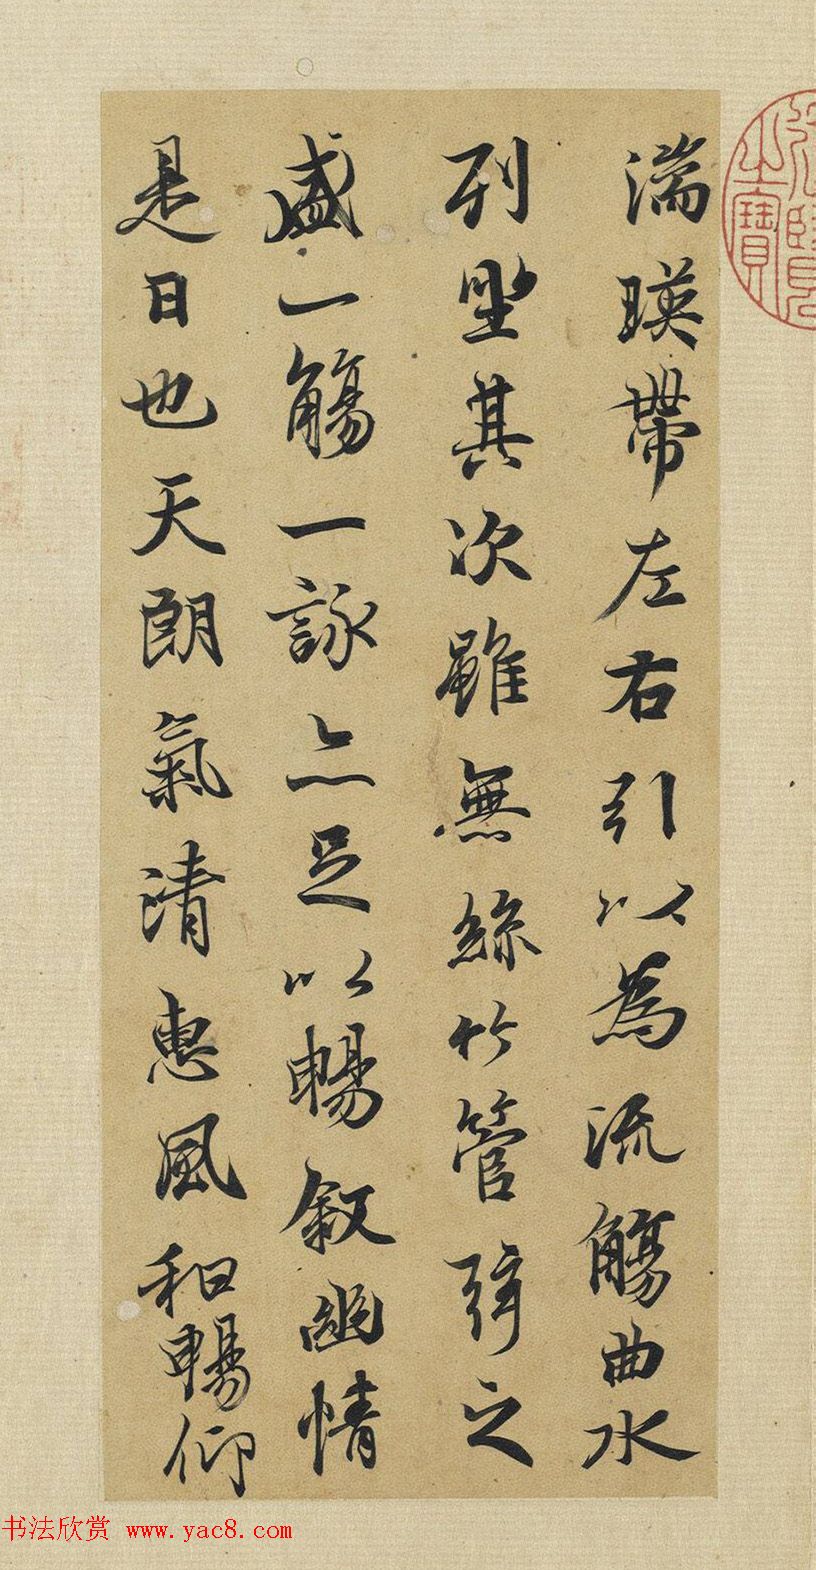 湍暎帶左右引以為流觴曲水
列坐其次雖無絲竹管弦之
盛一觴一詠亦足以暢敘幽情
是日也天朗氣清惠風和暢仰
之寶
书法欣赏 www.yac8.com